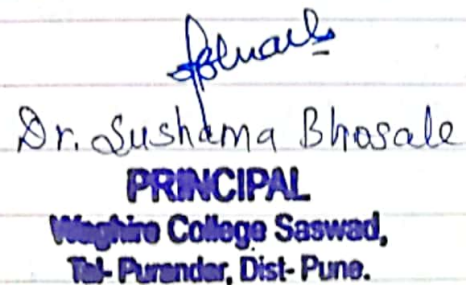 Dr. Sushama Bhosale
PRINCIPAL
Waghire College Saswad,
Tal- Purandar, Dist- Pune.